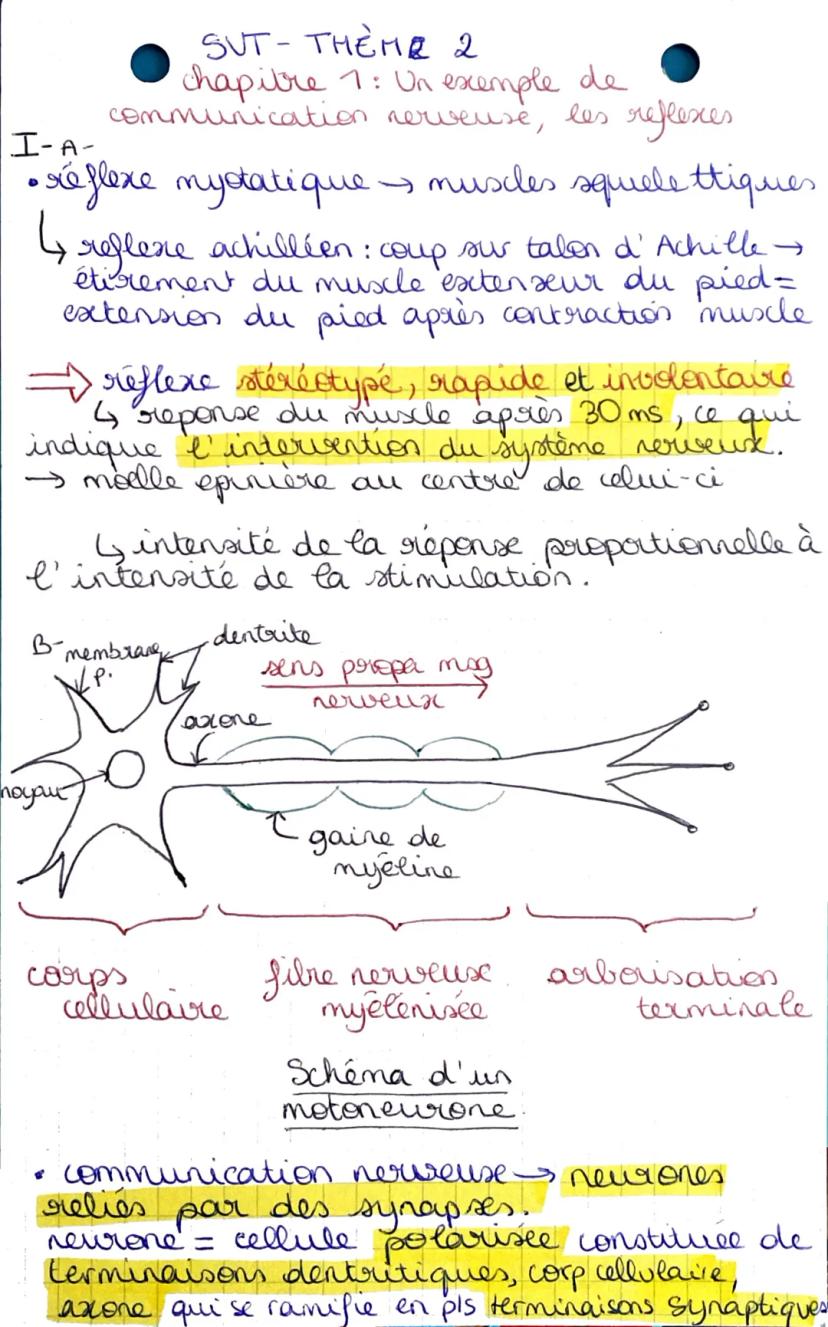 SVT - THÈME 2
chapitre 1 : Un exemple de
communication nerveuse, les reflexes
I - A -
• réflexe myotatique → muscles squelettiques
↳ reflexe achilléen : coup sur talon d'Achille →
étirement du muscle extenseur du pied =
extension du pied après contraction muscle
⇒ réflexe stéréotypé, rapide et involontaire
↳ reponse du muscle après 30 ms, ce qui
indique l'intervention du système nerveux.
→ moelle epinière au centre de celui-ci
↳ intensité de la réponse proportionnelle à
l'intensité de la stimulation.
B - membrane p.
dentrite
sens propa msg
nerveux
axone
noyau
gaine de
myéline
corps
cellulaire
fibre nerveuse
myélénisée
arborisation
terminale
Schéma d'un
motoneurone
• communication nerveuse → neurones
reliés par des synapses.
neurone = cellule polarisée constituée de
terminaisons dentritiques, corp cellulaire,
axone qui se ramifie en pls terminaisons synaptiques